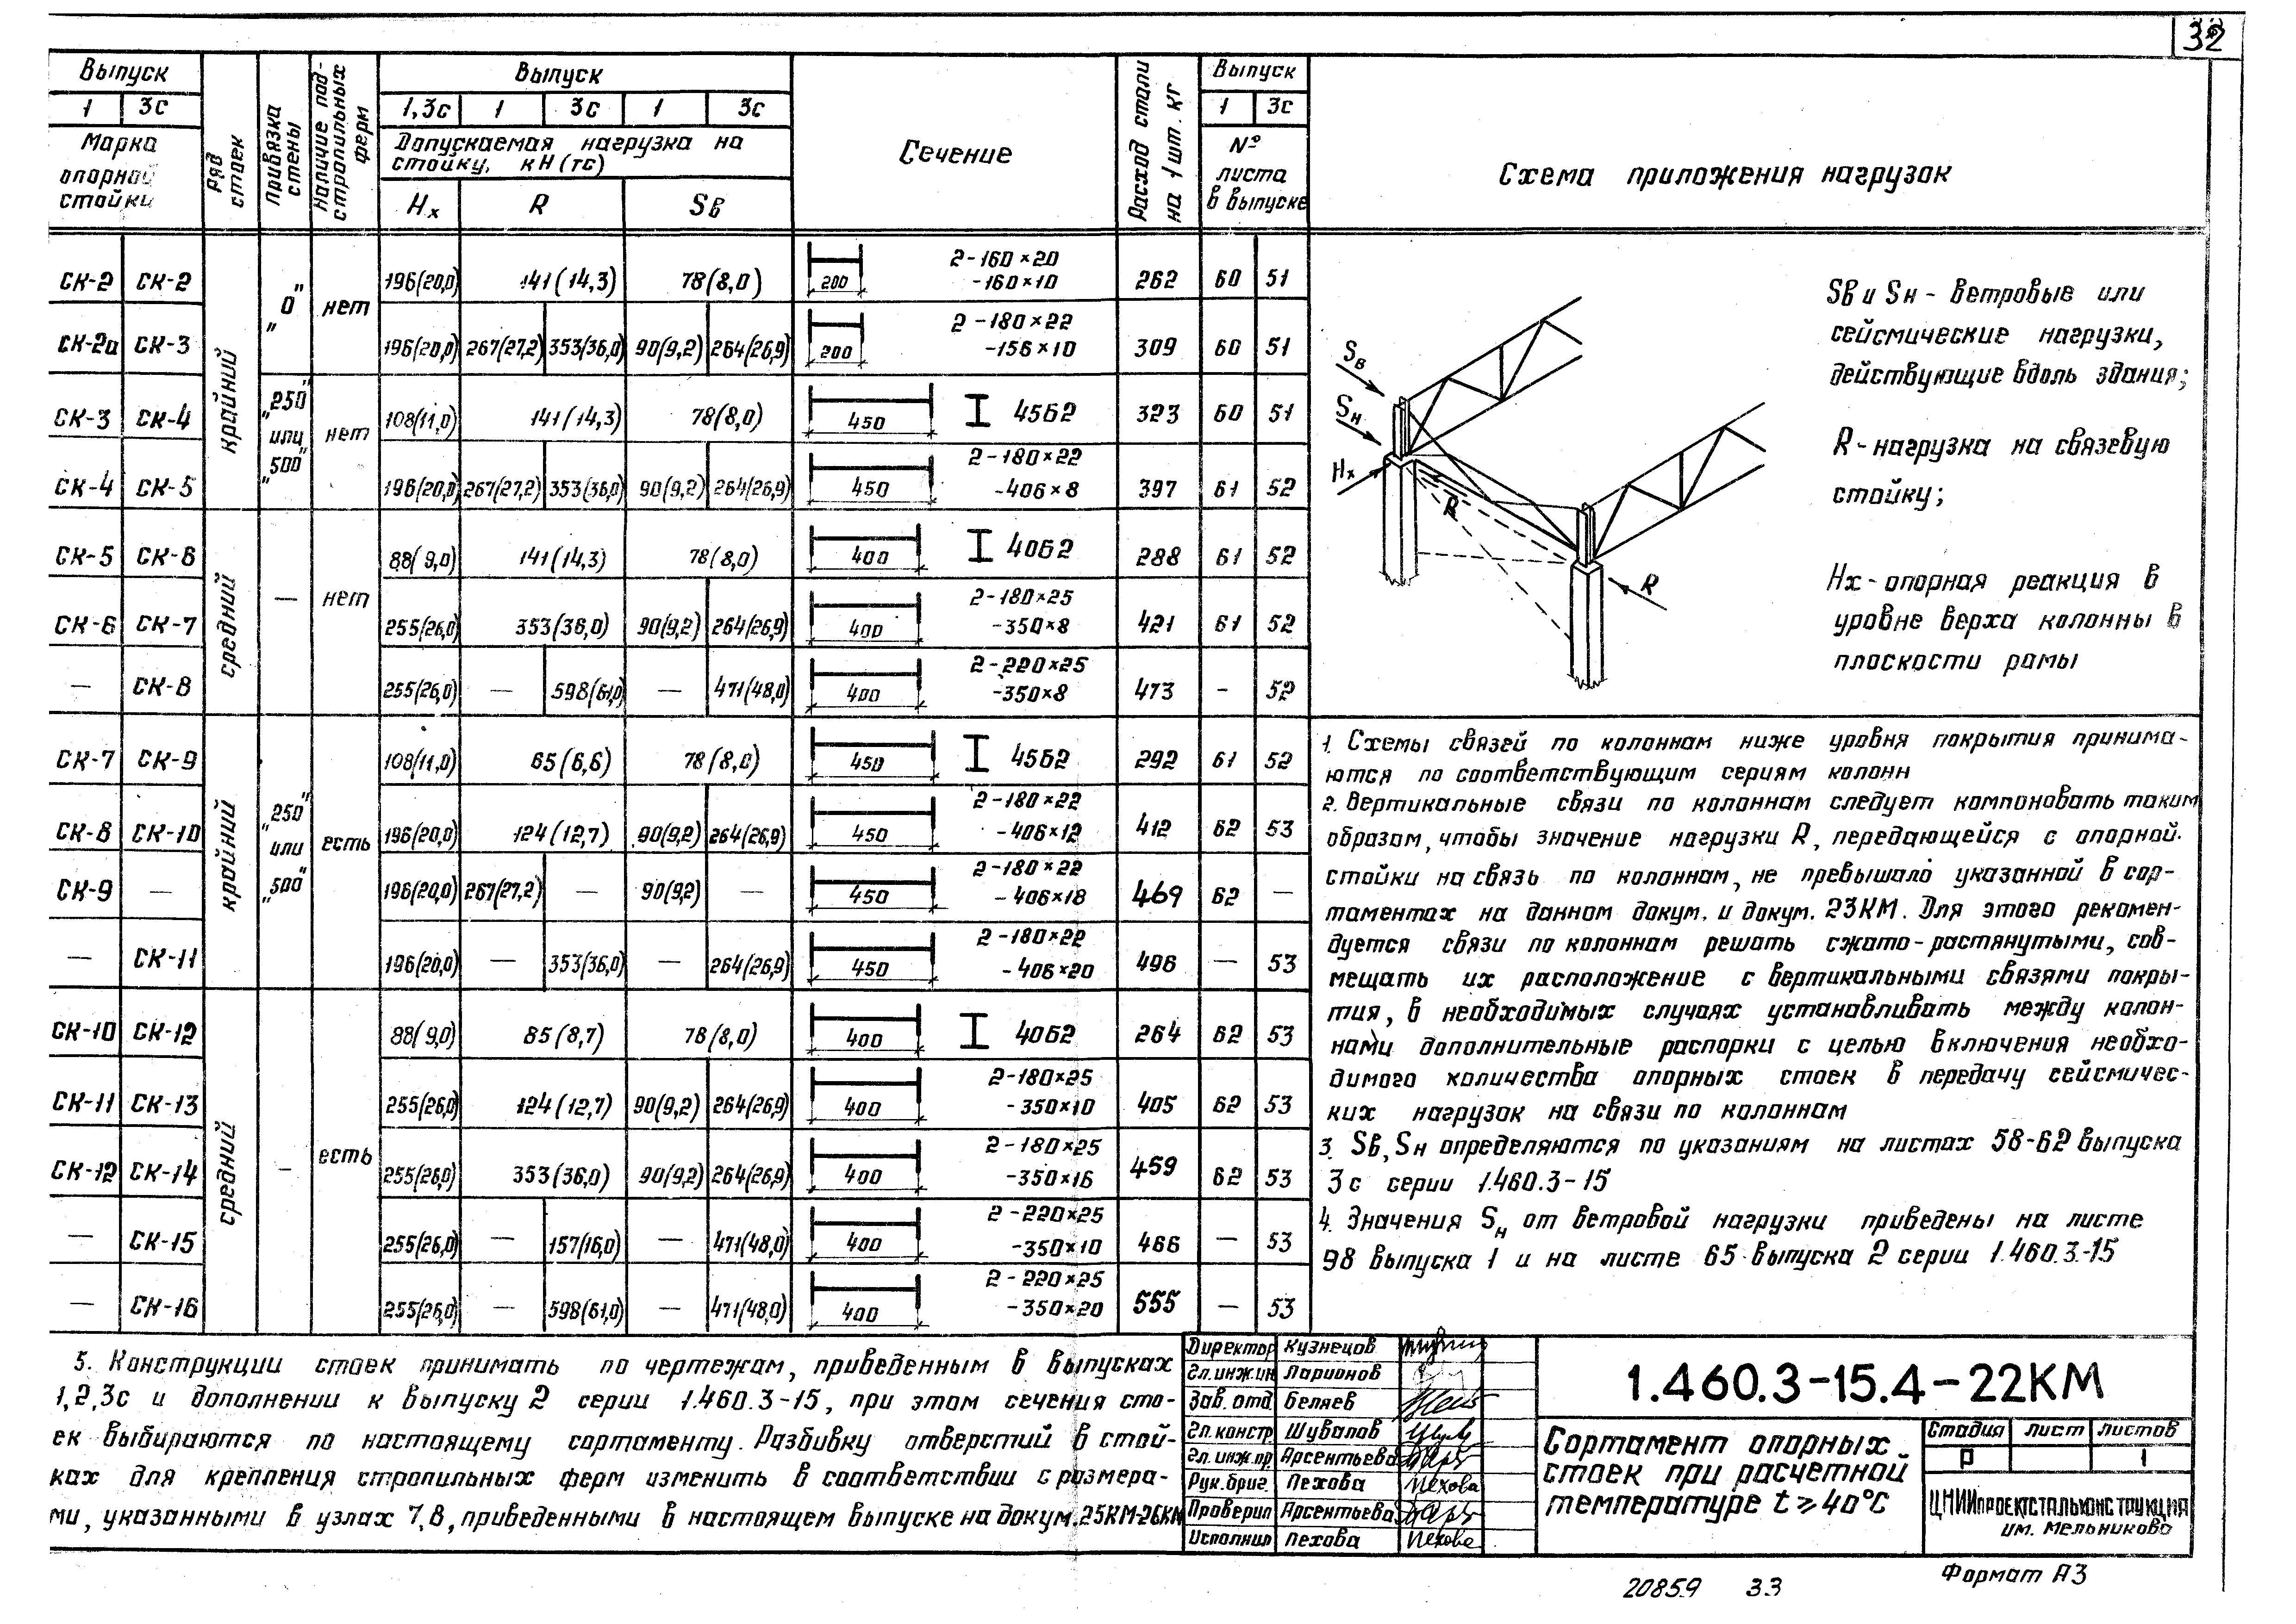 32
Выпуск
1 3с
Марка
опорной
стойки
Ряд стоек
Привязка стены
Наличие подстропильных ферм
Выпуск
1,3с 1 3с 1 3с
Допускаемая нагрузка на
стойку, кН (тс)
Hх R Sв
Сечение
Расход стали
на 1 шт. кг
Выпуск
1 3с
№
листа
в выпуске
Схема приложения нагрузок
СК-2 СК-2 крайний "0" нет 196(20,0) 141(14,3) 78(8,0) 200 2-160×20 -160×10 262 60 51
СК-2а СК-3 196(20,0) 267(27,2) 353(36,0) 90(9,2) 264(26,9) 200 2-180×22 -156×10 309 60 51
СК-3 СК-4 "250" или "500" нет 108(11,0) 141(14,3) 78(8,0) 450 I 45б2 323 60 51
СК-4 СК-5 196(20,0) 267(27,2) 353(36,0) 90(9,2) 264(26,9) 450 2-180×22 -406×8 397 61 52
СК-5 СК-6 средний — нет 88(9,0) 141(14,3) 78(8,0) 400 I 40б2 288 61 52
СК-6 СК-7 255(26,0) 353(36,0) 90(9,2) 264(26,9) 400 2-180×25 -350×8 421 61 52
— СК-8 255(26,0) — 598(61,0) — 471(48,0) 400 2-220×25 -350×8 473 - 52
СК-7 СК-9 крайний "250" или "500" есть 108(11,0) 65(6,6) 78(8,0) 450 I 45б2 292 61 52
СК-8 СК-10 196(20,0) 124(12,7) 90(9,2) 264(26,9) 450 2-180×22 -406×12 412 62 53
СК-9 — 196(20,0) 267(27,2) — 90(9,2) — 450 2-180×22 -406×18 469 62 —
— СК-11 196(20,0) — 353(36,0) — 264(26,9) 450 2-180×22 -406×20 496 — 53
СК-10 СК-12 средний - есть 88(9,0) 85(8,7) 78(8,0) 400 I 40б2 264 62 53
СК-11 СК-13 255(26,0) 124(12,7) 90(9,2) 264(26,9) 400 2-180×25 -350×10 405 62 53
СК-12 СК-14 255(26,0) 353(36,0) 90(9,2) 264(26,9) 400 2-180×25 -350×16 459 62 53
— СК-15 255(26,0) — 157(16,0) — 471(48,0) 400 2-220×25 -350×10 466 — 53
— СК-16 255(26,0) — 598(61,0) — 471(48,0) 400 2-220×25 -350×20 555 — 53
Sв
Sн
Hх
R
R
Sв и Sн - ветровые или
сейсмические нагрузки,
действующие вдоль здания;
R - нагрузка на связевую
стойку;
Hх - опорная реакция в
уровне верха колонны в
плоскости рамы
1. Схемы связей по колоннам ниже уровня покрытия принима-
ются по соответствующим сериям колонн
2. Вертикальные связи по колоннам следует компоновать таким
образом, чтобы значение нагрузки R, передающейся с опорной
стойки на связь по колоннам, не превышало указанной в сор-
таментах на данном докум. и докум. 23КМ. Для этого рекомен-
дуется связи по колоннам решать сжато-растянутыми, сов-
мещать их расположение с вертикальными связями покры-
тия, в необходимых случаях устанавливать между колон-
нами дополнительные распорки с целью включения необхо-
димого количества опорных стоек в передачу сейсмичес-
ких нагрузок на связи по колоннам
3. Sв, Sн определяются по указаниям на листах 58-62 выпуска
3с серии 1.460.3-15
4. Значения Sн от ветровой нагрузки приведены на листе
98 выпуска 1 и на листе 65 выпуска 2 серии 1.460.3-15
5. Конструкции стоек принимать по чертежам, приведенным в выпусках
1,2,3с и дополнении к выпуску 2 серии 1.460.3-15, при этом сечения сто-
ек выбираются по настоящему сортаменту. Разбивку отверстий в стой-
ках для крепления стропильных ферм изменить в соответствии с размера-
ми, указанными в узлах 7,8, приведенными в настоящем выпуске на докум. 25КМ-26КМ
Директор Кузнецов
Гл.инж.ин Ларионов
Зав. отд. Беляев
Гл.констр. Шувалов
Гл.инж.пр. Арсентьева
Рук.бриг. Пехова Пехова
Проверил Арсентьева
Исполнил Пехова Пехова
1.460.3-15.4-22КМ
Сортамент опорных
стоек при расчетной
температуре t ≥ 40°С
Стадия Лист Листов
Р 1
ЦНИИпроектстальконструкция
им. Мельникова
20859 33
Формат А3